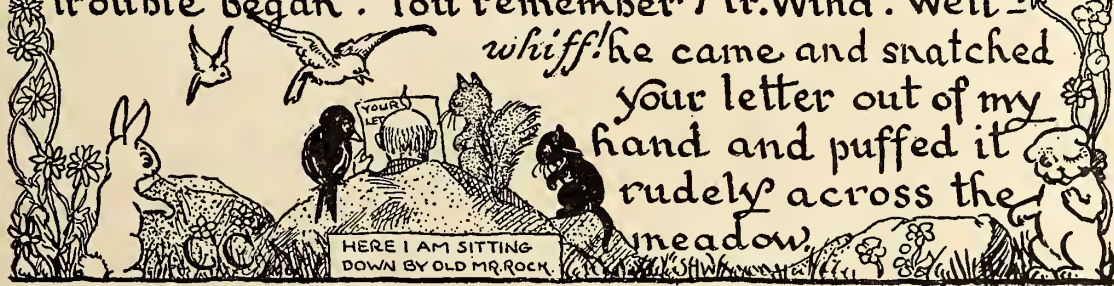 trouble began. You remember Mr. Wind. Well -
whiff! he came and snatched
your letter out of my
hand and puffed it
rudely across the
meadow,
YOUR
LET
HERE I AM SITTING
DOWN BY OLD MR. ROCK.